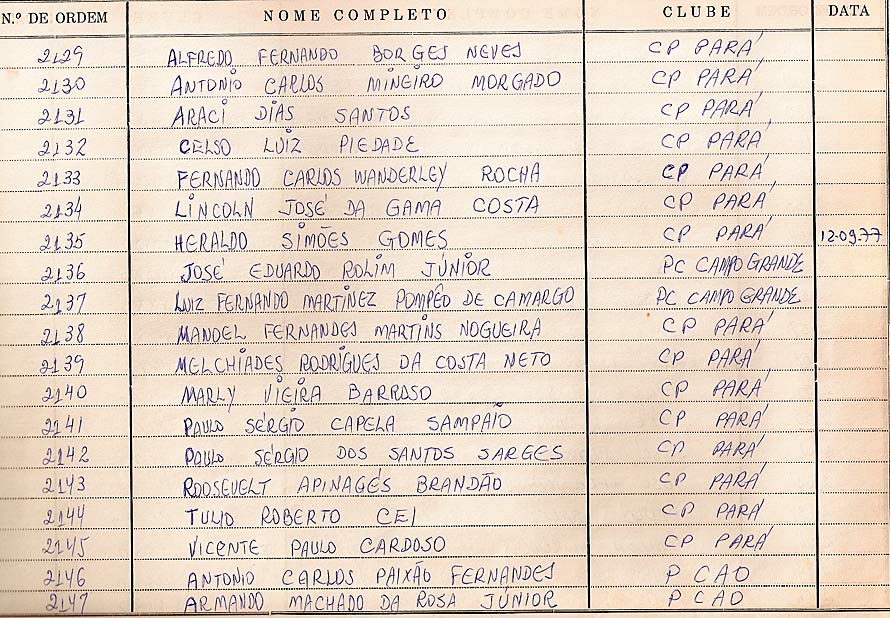 N.º DE ORDEM NOME COMPLETO CLUBE DATA
2129 ALFREDO FERNANDO BORGES NEVES CP PARÁ
2130 ANTONIO CARLOS MINEIRO MORGADO CP PARÁ
2131 ARACI DIAS SANTOS CP PARÁ
2132 CELSO LUIZ PIEDADE CP PARÁ
2133 FERNANDO CARLOS WANDERLEY ROCHA CP PARÁ
2134 LINCOLN JOSÉ DA GAMA COSTA CP PARÁ
2135 HERALDO SIMÕES GOMES CP PARÁ 12-09-77
2136 JOSÉ EDUARDO ROLIM JÚNIOR PC CAMPO GRANDE
2137 LUIZ FERNANDO MARTINEZ POMPÊO DE CAMARGO PC CAMPO GRANDE
2138 MANOEL FERNANDES MARTINS NOGUEIRA CP PARÁ
2139 MELCHIADES RODRIGUES DA COSTA NETO CP PARÁ
2140 MARLY VIEIRA BARROSO CP PARÁ
2141 PAULO SÉRGIO CAPELA SAMPAIO CP PARÁ
2142 PAULO SÉRGIO DOS SANTOS SARGES CP PARÁ
2143 ROOSEVELT APINAGÉS BRANDÃO CP PARÁ
2144 TULIO ROBERTO CEI CP PARÁ
2145 VICENTE PAULO CARDOSO CP PARÁ
2146 ANTONIO CARLOS PAIXÃO FERNANDES P CAO
2147 ARMANDO MACHADO DA ROSA JÚNIOR P CAO